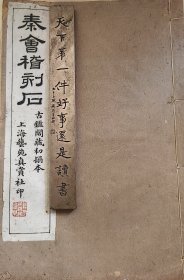 天下第一件好事還是讀書
秦會稽刻石
古鑑閣藏初搨本
上海藝苑真賞社印